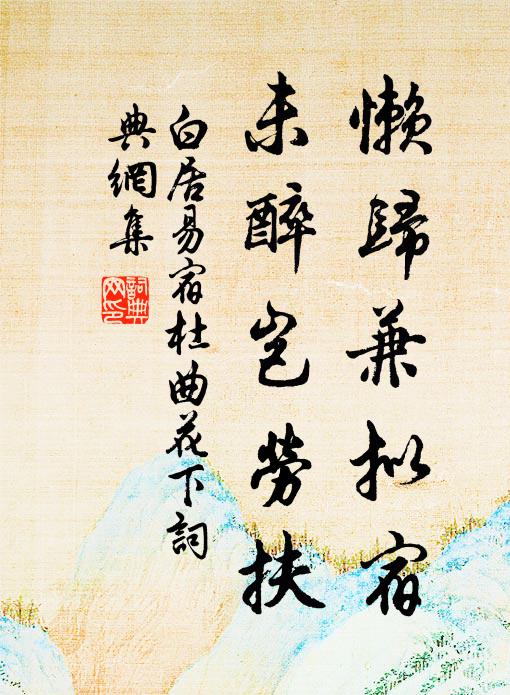 懒歸兼拟宿
未醉岂勞扶
白居易宿杜曲花下詞
典網集
詞典
网印